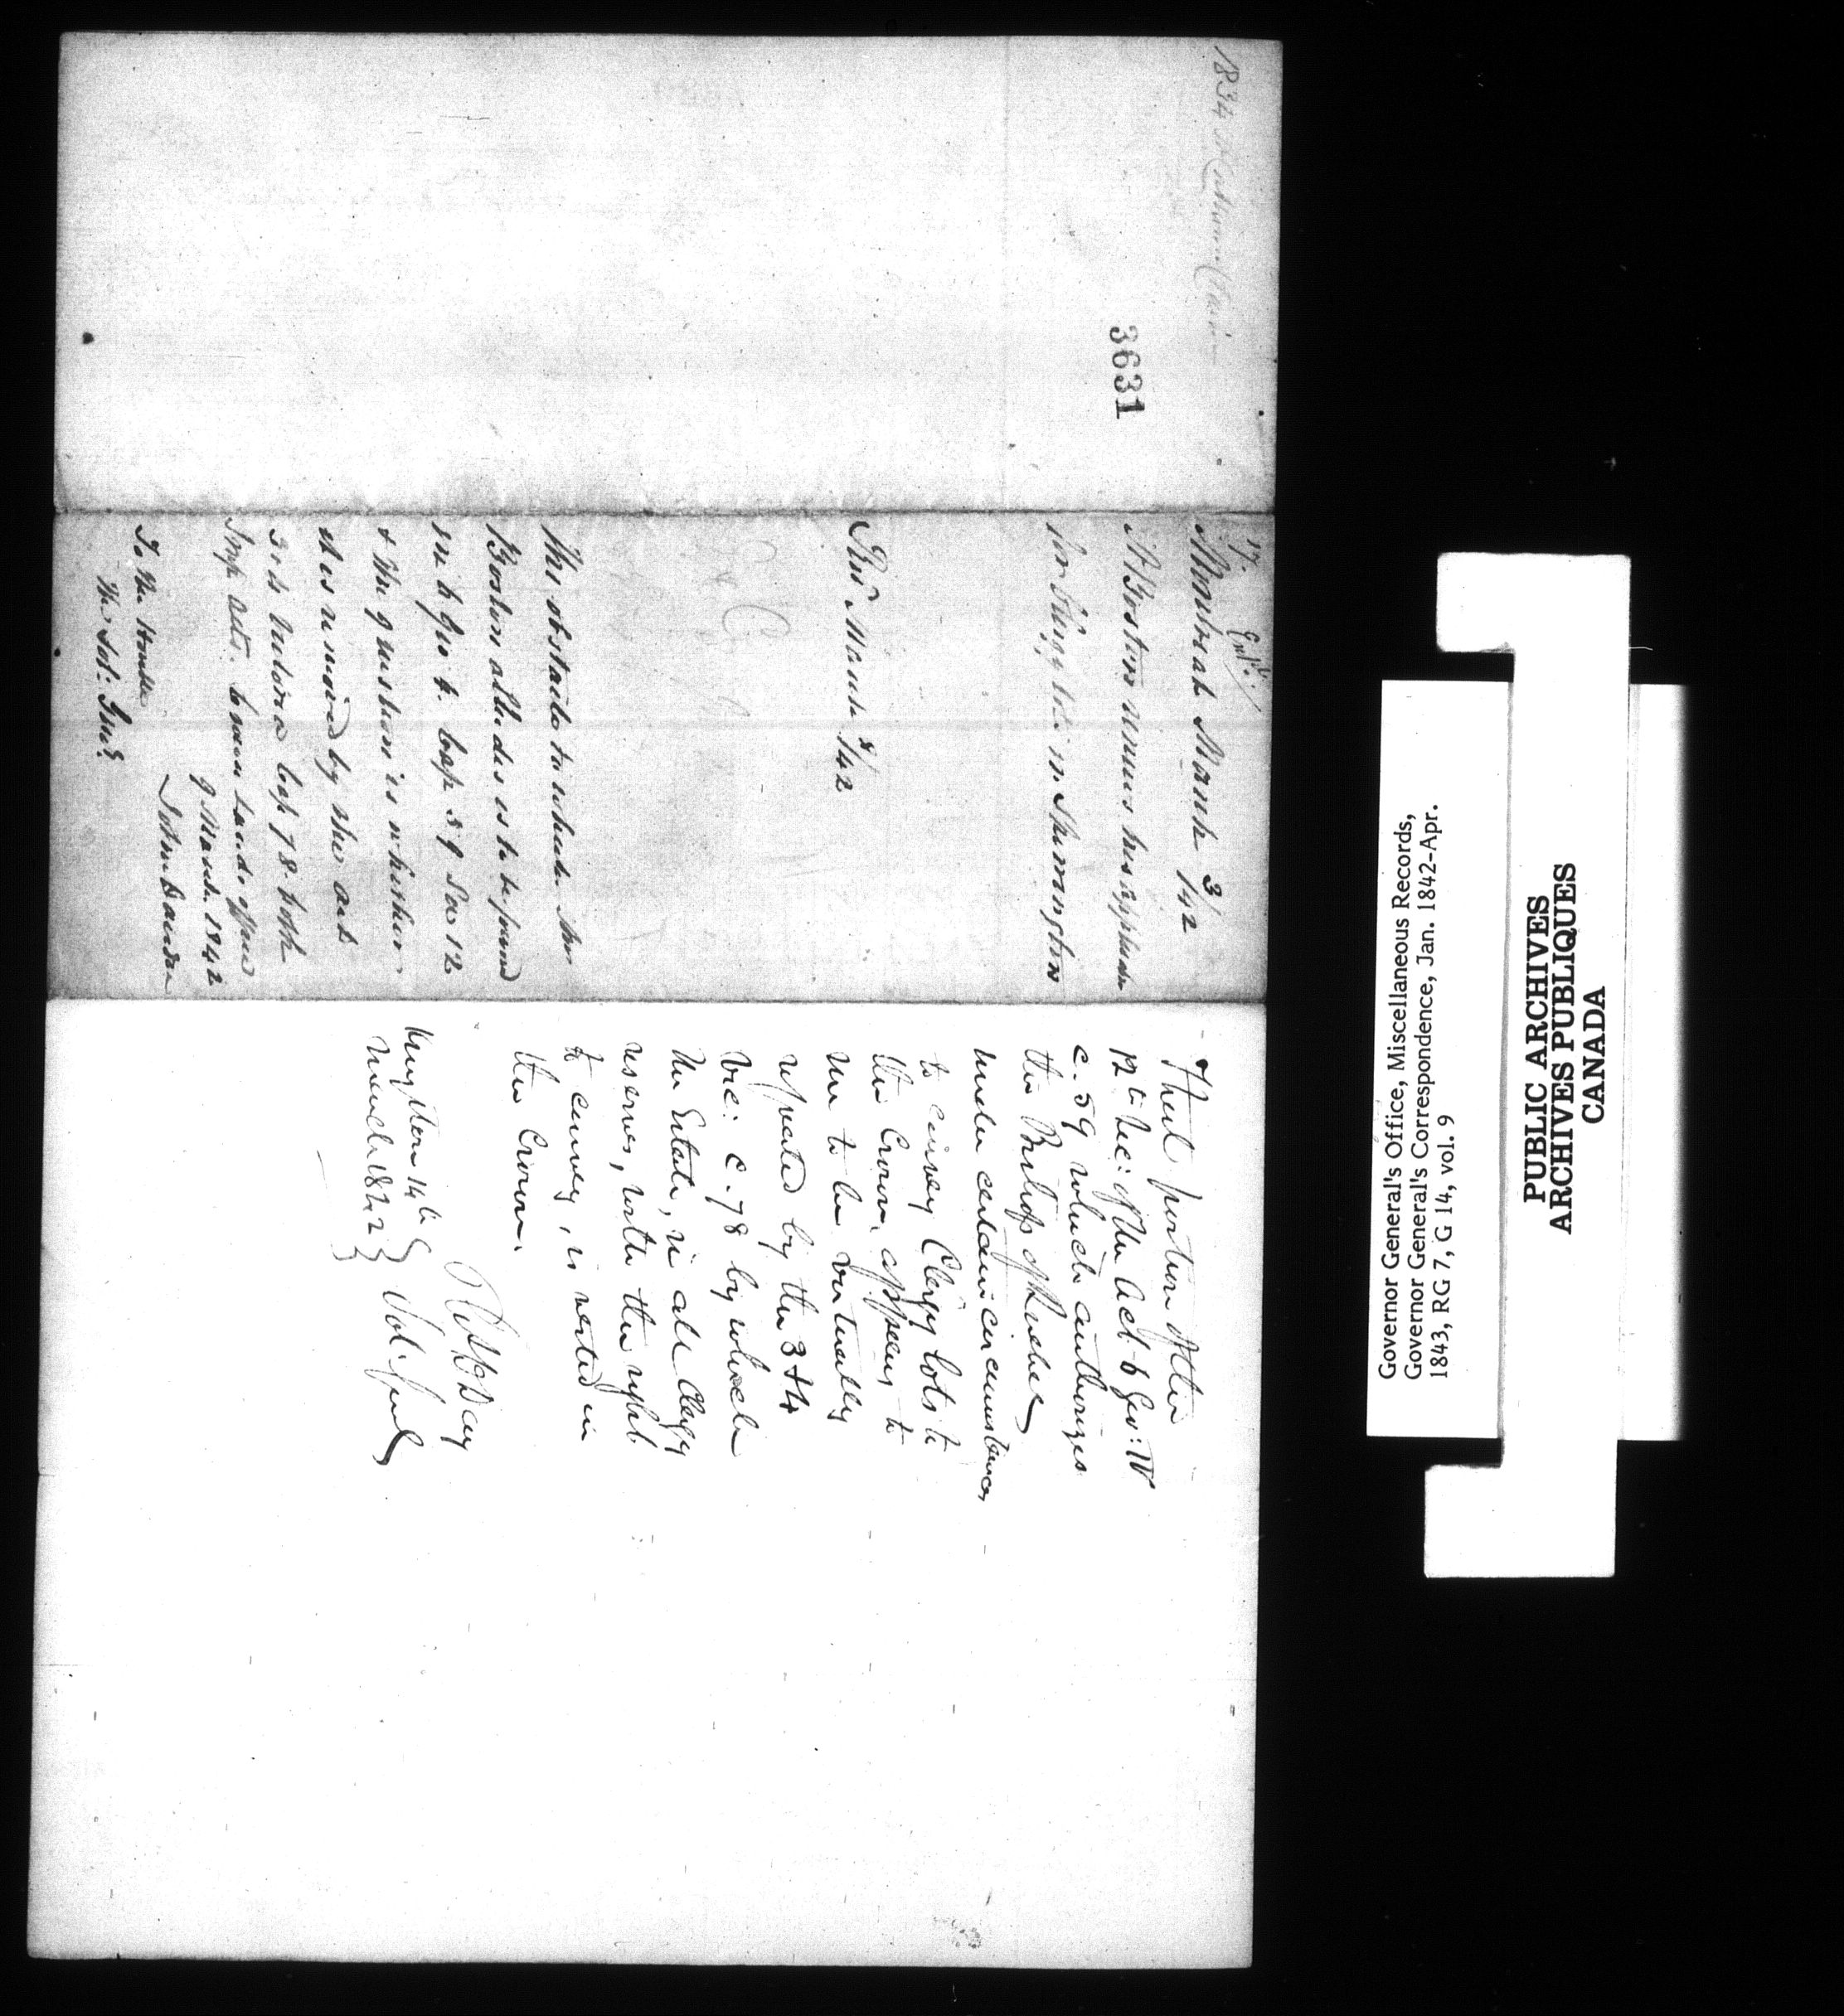 1834
3631
17.
Montreal March 3/42
A Boston renews his application
for Clergy lots in Sherrington
Recd March 8/42
The obstacle to which Mr
Boston alludes is to be found
in 6 Geo 4. Cap 59 Sec 12
& the question is whether
it is removed by the act
3 & 4 Victoria Cap 78 both
Imp Acts. Crown Lands Office
9 March 1842
John Davidson
To the Honble
The Sol: Genl
That portion of the
12th Sec: of the Act 6 Geo: IV
c. 59 which authorizes
the Bishop of Quebec
under certain circumstances
to convey Clergy lots to
the Crown, appears to
me to be virtually
repealed by the 3 & 4
Vic: c. 78 by which
the Estate, in all Clergy
reserves, with the right
to convey, is vested in
the Crown.
Day
Sol. Genl
Kingston 14th
March 1842
Governor General's Office, Miscellaneous Records,
Governor General's Correspondence, Jan. 1842-Apr.
1843, RG 7, G 14, vol. 9
PUBLIC ARCHIVES
ARCHIVES PUBLIQUES
CANADA